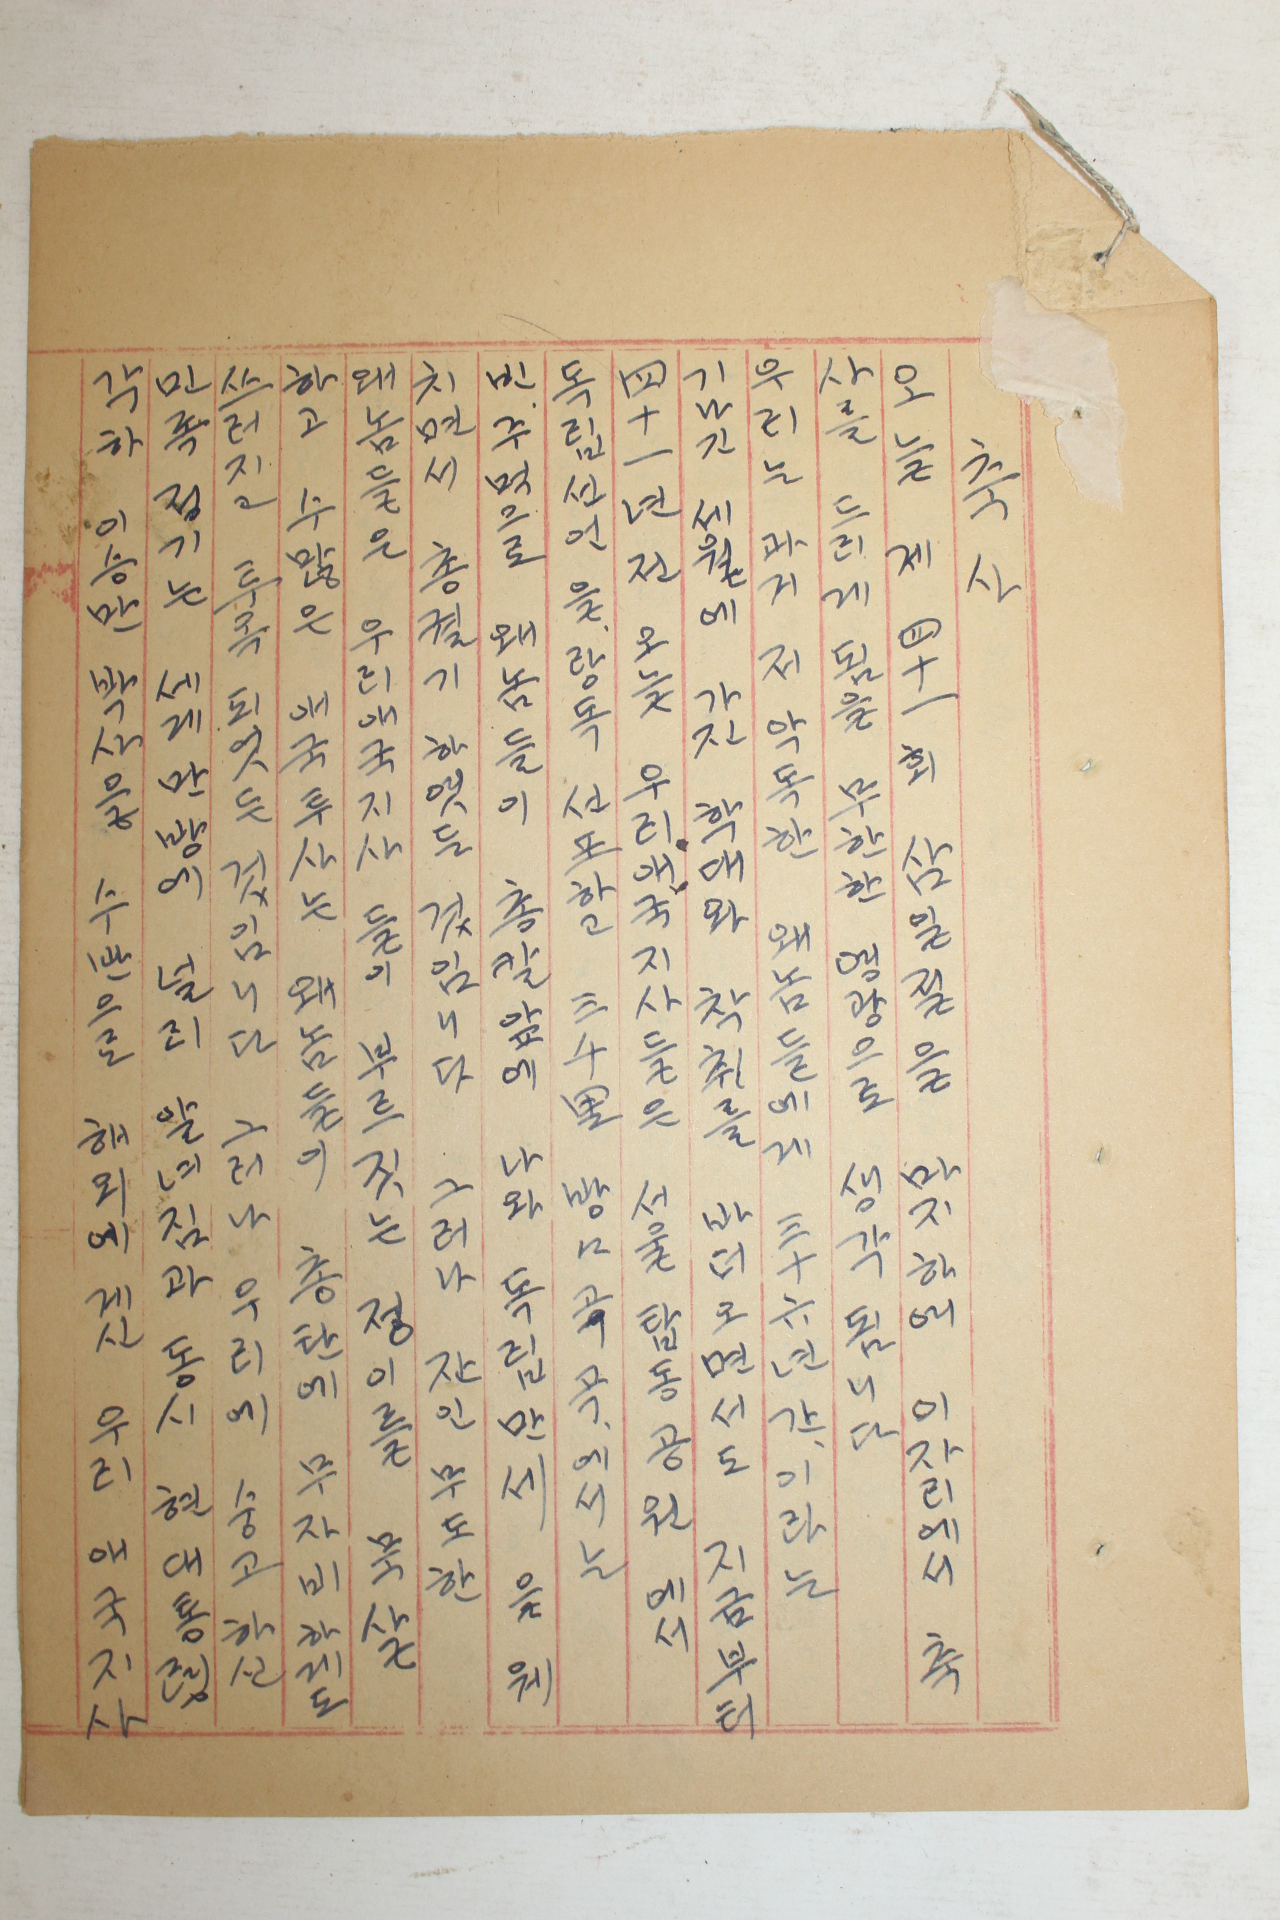 축사
오늘 제 四十一 회 삼일절을 마지하에 이자리에서 축
사를 드리게 됨을 무한한 영광으로 생각 됨니다
우리는 과거 저 악독한 왜놈들에게 三十六년간, 이라는
기나긴 세월에 가진 학대와 착취를 바더오면서도 지금부터
四十一년전 오늘 우리애국지사들은 서울 탑동공원에서
독립선언을, 랑독 선포하고 三千里 방방곡곡, 에서는
빈, 주먹으로 왜놈들이 총칼앞에 나와 독립만세을 웨
치면서 총궐기 하엿든 것임니다 그러나 잔인무도한
왜놈들은 우리애국지사들이 부르짓는 정이를 묵살
하고 수많은 애국투사는 왜놈들이 총탄에 무자비하게도
쓰러지고 투옥되엇든 것임니다 그러나 우리에 숭고하신
민족정기는 세게만방에 널리 알녀짐과 동시 현대통령
각하 이승만 박사을 수반으로 해외에 게신 우리 애국지사